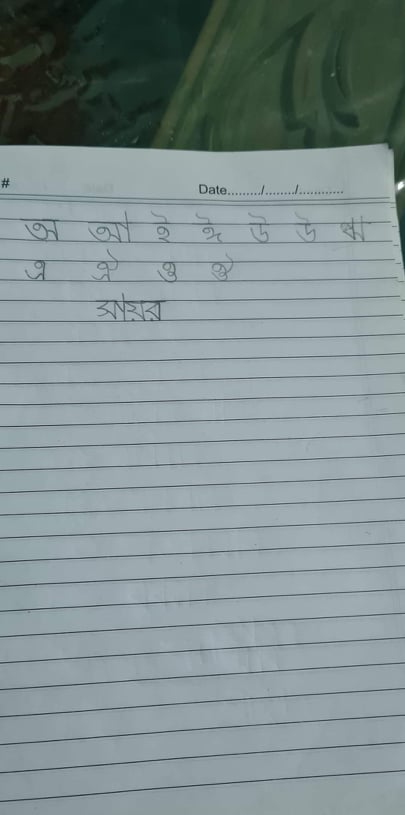 # Date........./......../............
অ আ ই ঈ উ ঊ ঋ
এ ঐ ও ঔ
সায়র